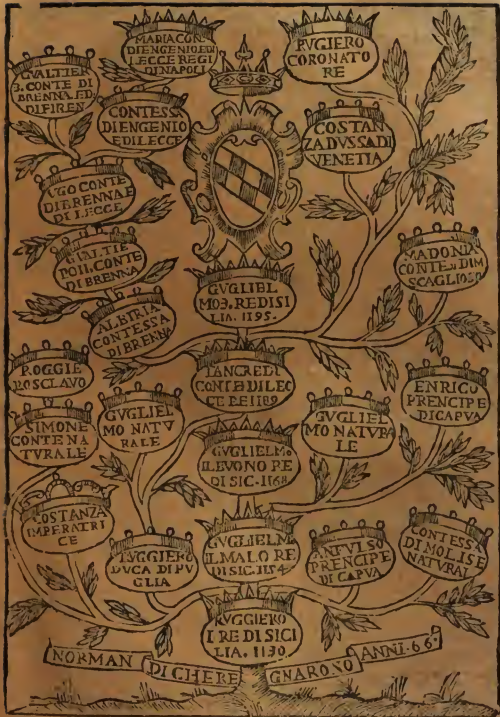 MARIA CON
DI ENGENIO EDI
LECCE REGI
DI NAPOLI
RVGIERO
CORONATO
RE
GVALTIER
3. CONTE DI
BRENNA ED
DI FIREN
CONTESSA
DI ENGENIO
EDI LECCE
COSTAN
ZA DVSSA DI
VENETIA
VGO CONTE
DI BRENNA E
DI LECCE
GIALTIE
RO II. CONTE
DI BRENNA
MADONIA
CONTE
SCAGLIOSO
GVGLIEL
MO 3. RE DI SI
LIA. 1195.
ALBIRIA
CONTESSA
DI BRENNA
ROGGIE
RO SCLAVO
TANCREDI
CONTE DI LEC
CE RE 1189
ENRICO
PRENCIPE
DI CAPVA
SIMONE
CONTE NA
TVRALE
GVGLIEL
MO NATV
RALE
GVGLIEL
MO NATVRA
LE
GVGLIELMO
IL BVONO RE
DI SIC. 1168
COSTANZA
IMPERATRI
CE
RVGGIERO
DVCA DI PV
GLIA
GVGLIELM
IL MALO RE
DI SIC. 1154
ANFVLSO
PRENCIPE
DI CAPVA
CONTESSA
DI MOLISE
NATVRAL
RVGGIERO
I RE DI SICI
LIA. 1130.
NORMAN DI CHE RE GNARONO ANNI. 66